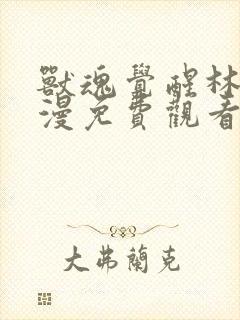 獸魂覺醒林
漫免費觀看
大弗蘭克